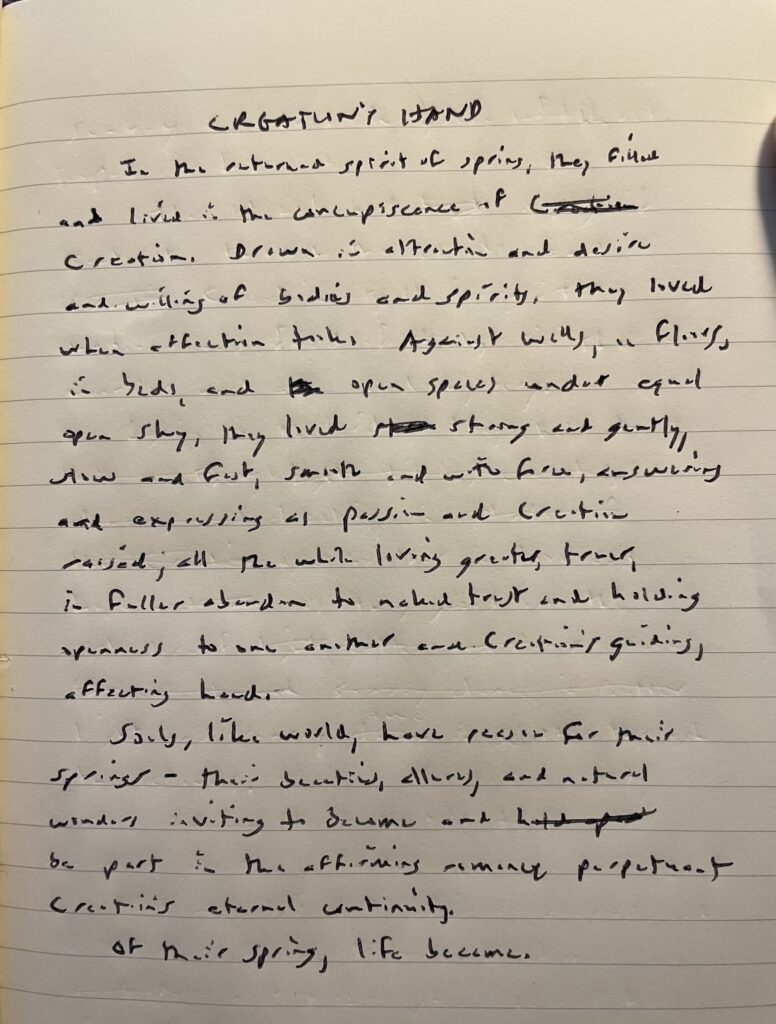 CREATION'S HAND
In the returned spirit of spring, they filled
and lived in the concupiscence of
Creation. Drawn in attraction and desire
and willing of bodies and spirits, they loved
when affection told. Against walls, on floors,
in beds, and open spaces under equal
open sky, they lived strong and gently,
slow and fast, smooth and with force, answering
and expressing as passion and Creation
raised; all the while loving greater, truer,
in fuller abandon to naked trust and holding
openness to one another and Creation's guiding,
affecting hand.
Souls, like world, have reason for their
springs – their beauties, allures, and natural
wonders inviting to become and
be part in the affirming romance perpetuant
Creation's eternal continuity.
Of their spring, life became.